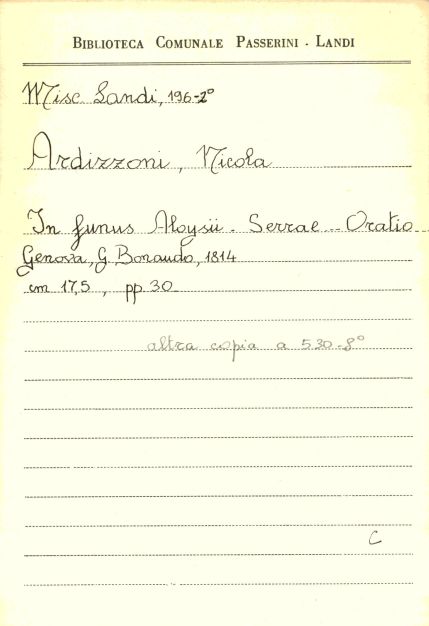 Biblioteca Comunale Passerini - Landi
Misc. Landi, 196-2°
Ardizzoni, Nicola
In funus Aloysii Serrae - Oratio
Genova, G. Bonaudo, 1814
cm 17,5, pp. 30
altra copia a 530-8°
C